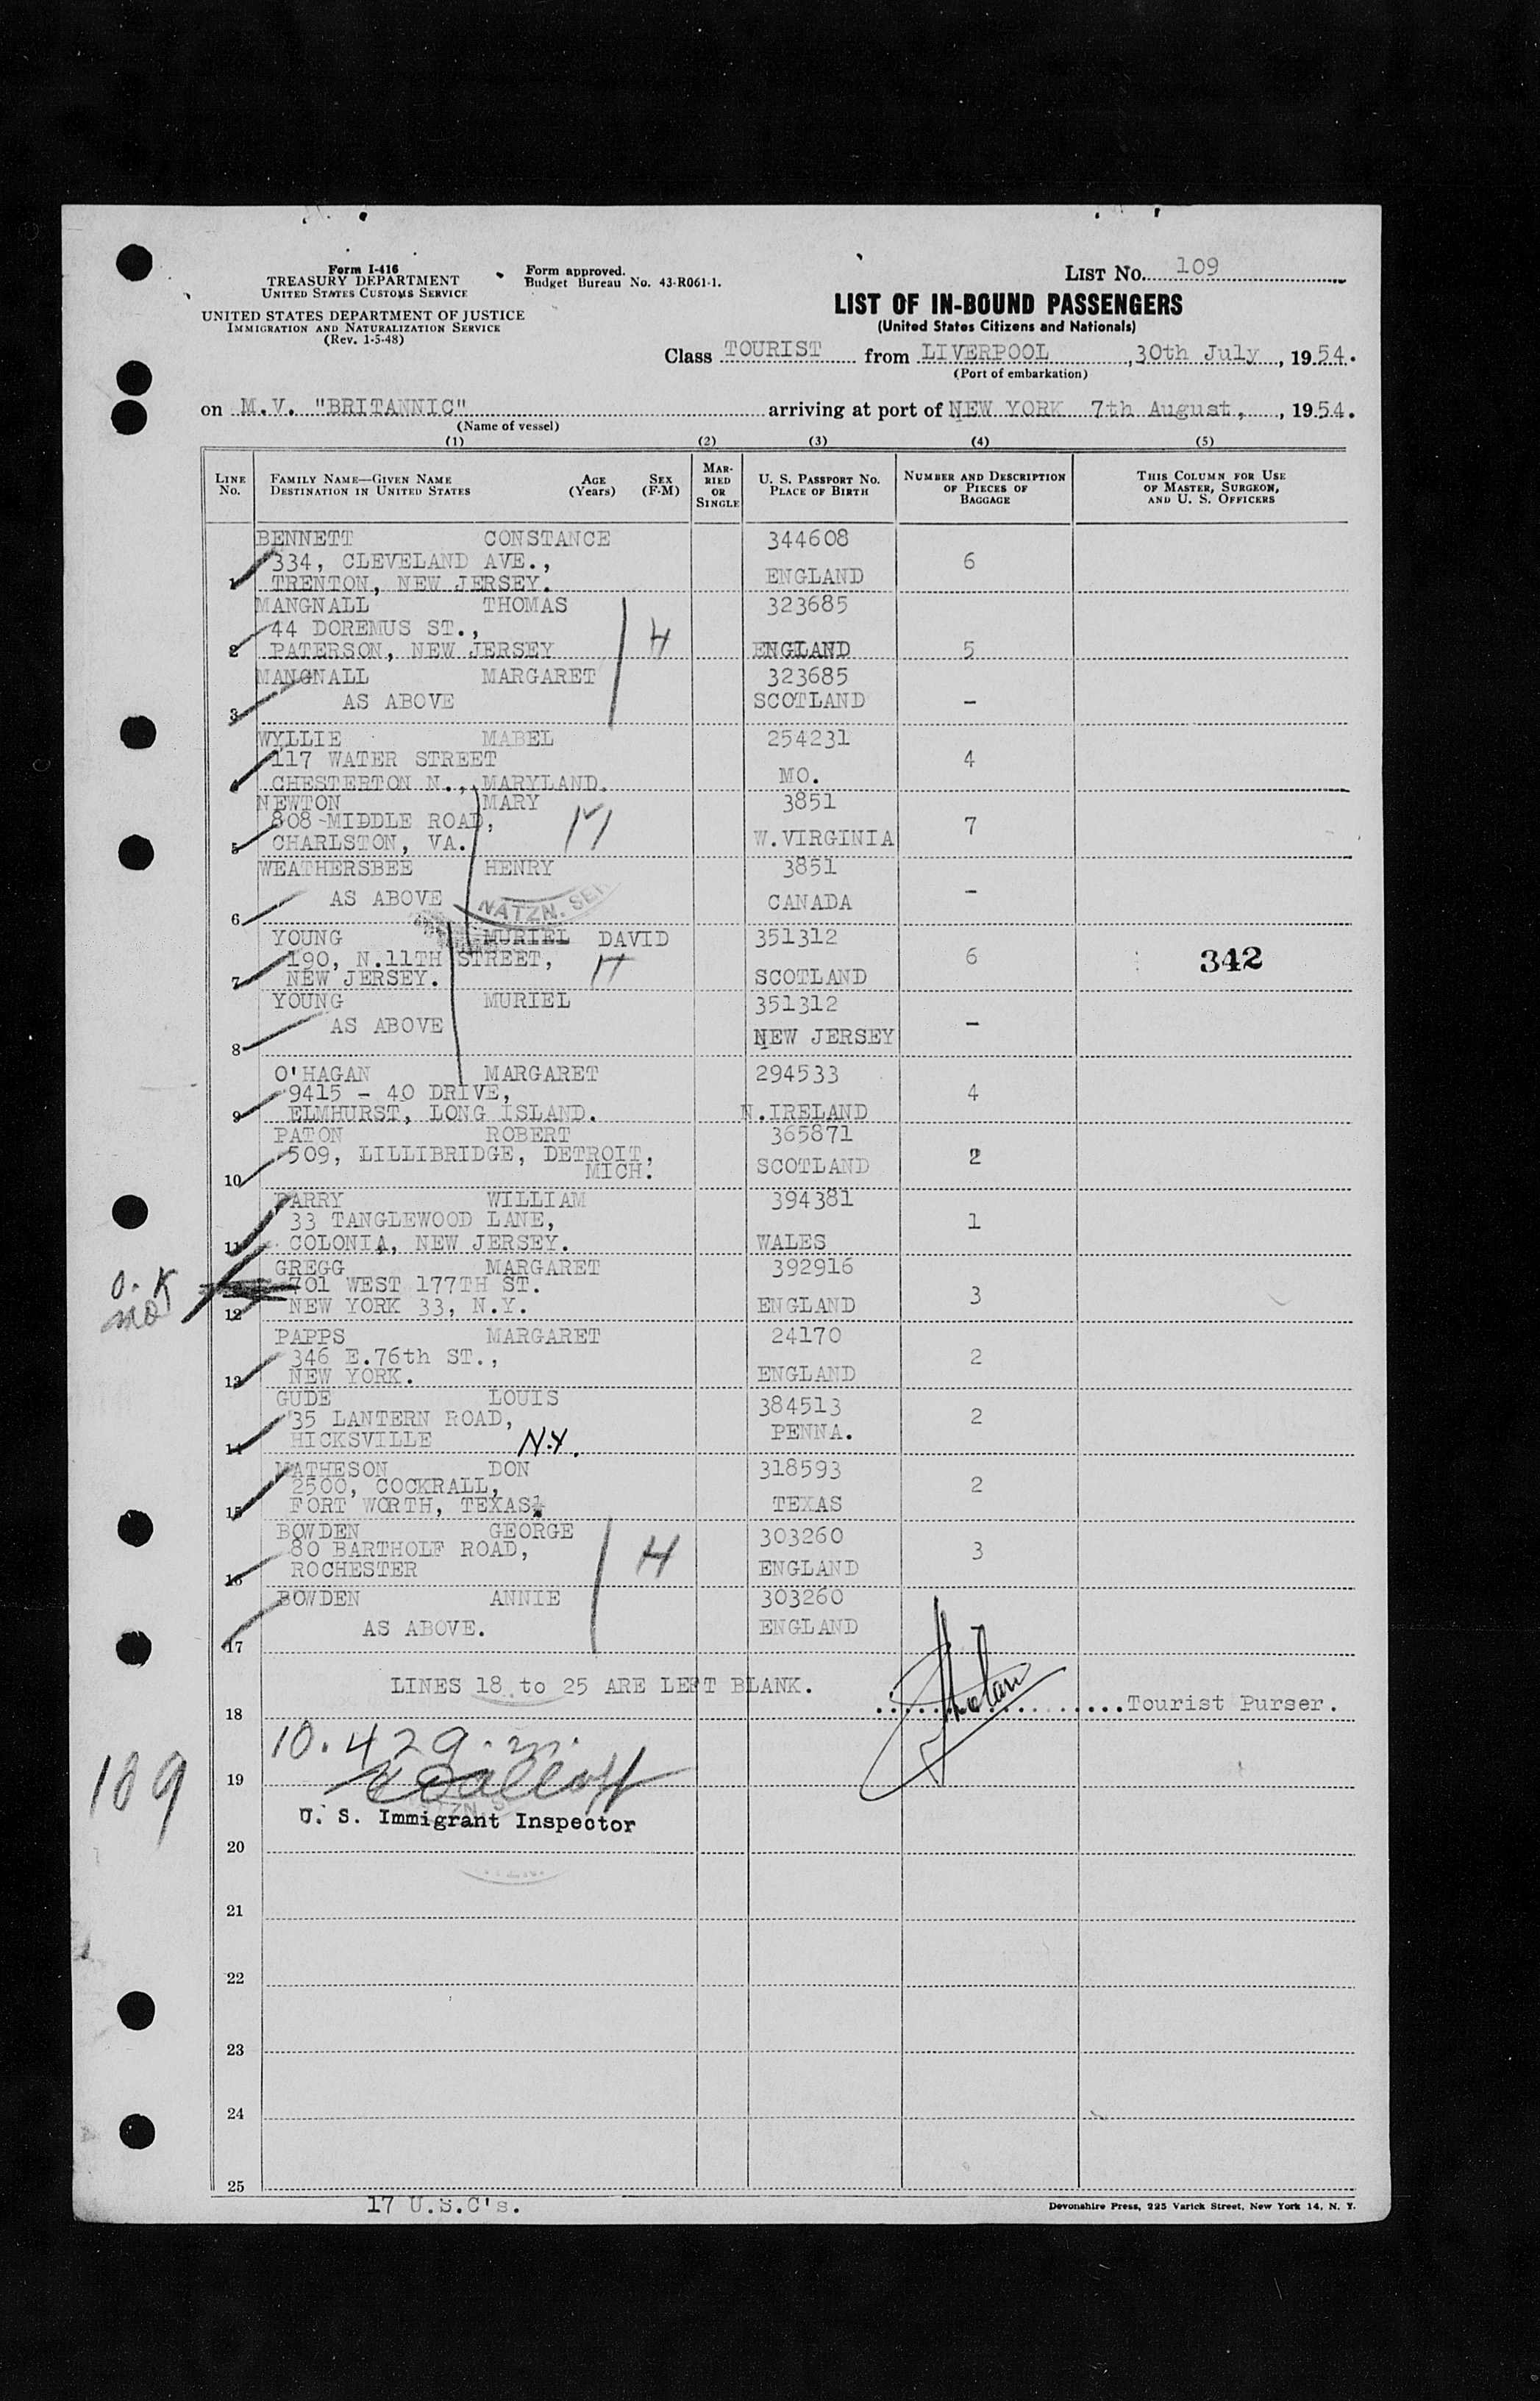 Form I-416
TREASURY DEPARTMENT
UNITED STATES CUSTOMS SERVICE
UNITED STATES DEPARTMENT OF JUSTICE
IMMIGRATION AND NATURALIZATION SERVICE
(Rev. 1-5-48)
Form approved.
Budget Bureau No. 43-R061-1.
LIST No. 109
LIST OF IN-BOUND PASSENGERS
(United States Citizens and Nationals)
Class TOURIST from LIVERPOOL, 30th July, 1954.
(Port of embarkation)
on M.V. "BRITANNIC" arriving at port of NEW YORK 7th August, , 1954.
(Name of vessel)
(1) (2) (3) (4) (5)
LINE No. FAMILY NAME—GIVEN NAME DESTINATION IN UNITED STATES AGE (Years) SEX (F-M) MARRIED OR SINGLE U. S. PASSPORT NO. PLACE OF BIRTH NUMBER AND DESCRIPTION OF PIECES OF BAGGAGE THIS COLUMN FOR USE OF MASTER, SURGEON, AND U. S. OFFICERS
BENNETT CONSTANCE 344608
334, CLEVELAND AVE., 6
1 TRENTON, NEW JERSEY. ENGLAND
MANGNALL THOMAS 323685
44 DOREMUS ST., H
2 PATERSON, NEW JERSEY ENGLAND 5
MANGNALL MARGARET 323685
3 AS ABOVE SCOTLAND -
WYLLIE MABEL 254231
117 WATER STREET 4
4 CHESTERTON N., MARYLAND. MO.
NEWTON MARY 3851
808 MIDDLE ROAD, 7
5 CHARLSTON, VA. W.VIRGINIA
WEATHERSBEE HENRY 3851
6 AS ABOVE CANADA -
NATZN. SER
YOUNG MURIEL DAVID 351312
190, N.11TH STREET, H 6 342
7 NEW JERSEY. SCOTLAND
YOUNG MURIEL 351312
8 AS ABOVE NEW JERSEY -
O'HAGAN MARGARET 294533
9415 - 40 DRIVE, 4
9 ELMHURST, LONG ISLAND. N.IRELAND
PATON ROBERT 365871
509, LILLIBRIDGE, DETROIT, 2
10 MICH. SCOTLAND
PARRY WILLIAM 394381
33 TANGLEWOOD LANE, 1
11 COLONIA, NEW JERSEY. WALES
O.K
GREGG MARGARET 392916
701 WEST 177TH ST. 3
12 NEW YORK 33, N.Y. ENGLAND
PAPPS MARGARET 24170
346 E.76th ST., 2
13 NEW YORK. ENGLAND
GUDE LOUIS 384513
35 LANTERN ROAD, 2
14 HICKSVILLE N.Y. PENNA.
MATHESON DON 318593
2500, COCKRALL, 2
15 FORT WORTH, TEXAS TEXAS
BOWDEN GEORGE 303260
80 BARTHOLF ROAD, H 3
16 ROCHESTER ENGLAND
BOWDEN ANNIE 303260
17 AS ABOVE. ENGLAND
LINES 18 to 25 ARE LEFT BLANK.
18 Tourist Purser.
10.42 a.m.
109
19
U. S. Immigrant Inspector
20
21
22
23
24
25
17 U.S.C's.
Devonshire Press, 225 Varick Street, New York 14, N. Y.